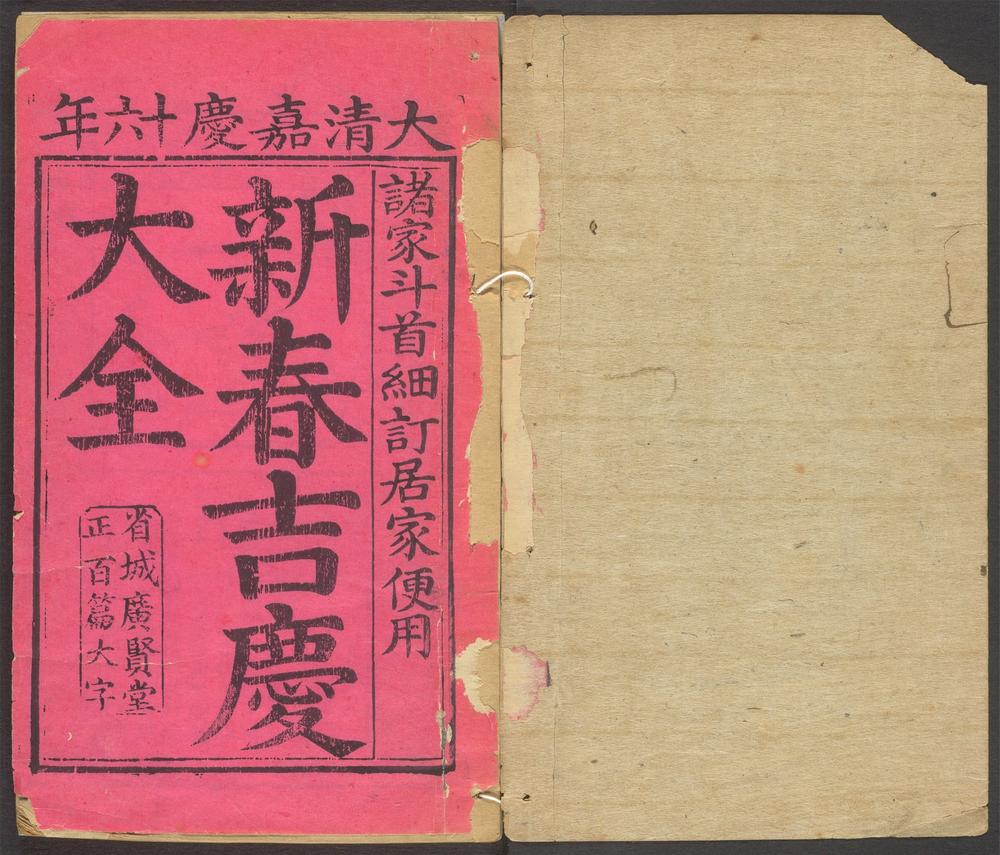 大清嘉慶十六年
諸家斗首細訂居家便用
新春吉慶
大全
省城廣賢堂
正百篇大字